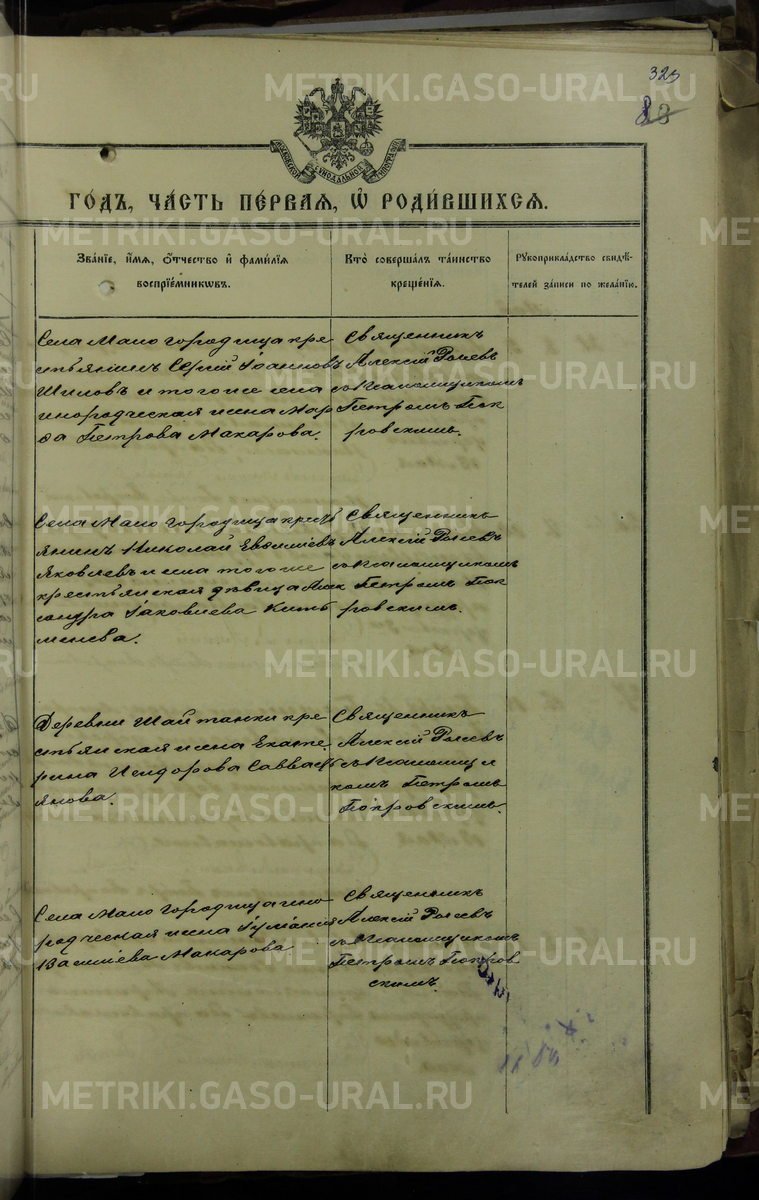 323
МОСКОВСКОЙ СУНОДАЛЬНОЙ ТИПОГРАФІИ
ГО́ДЪ, ЧА́СТЬ ПЕ́РВАЯ, Ѡ҆ РОДИ́ВШИХСЯ.
Зва́нїе, и҆́мя, ѻ҆́тчество и҆ фами́лїя
воспрїе́мниковъ.
Кто̀ совершалъ таинство
крещенїя.
Рꙋкоприкла́дство свидѣ́-
телей записи по желанїю.
Села Мало городища кре
стьянинъ Сергій Іоанновъ
Шиловъ и того же села
инородческая жена Мар
ѳа Петрова Макарова.
Священникъ
Алексій
съ псаломщикомъ
Петромъ Пок
ровскимъ.
Села Мало городища кресть
янинъ Николай Евфиміевъ
Яковлевъ и села того же
крестьянская дѣвица Алек
сандра Іаковлева
менева.
Священникъ
Алексій
съ псаломщикомъ
Петромъ Пок
ровскимъ.
Деревни Шайтанки кре
стьянская жена Екате
рина Исидорова Савват
янова.
Священникъ
Алексій
съ псаломщи
комъ Петромъ
Покровскимъ.
Села Мало городища ино
родческая жена Іуліанія
Василіева Макарова
Священникъ
Алексій
съ псаломщикомъ
Петромъ Покров
скимъ.
METRIKI.GASO-URAL.RU